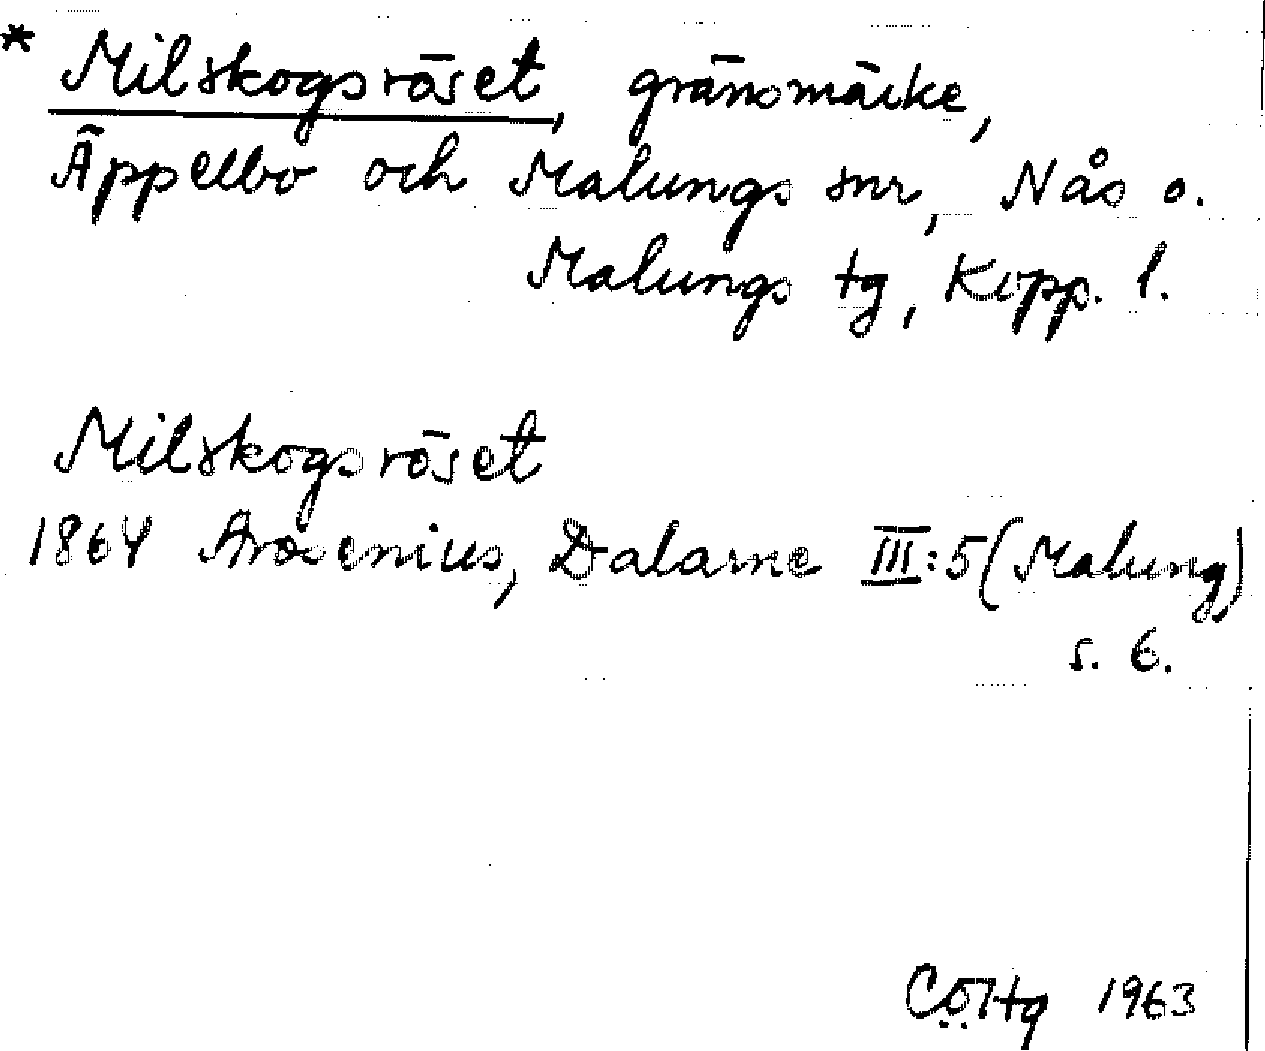 * Milskogsröset, gränsmärke,
Äppelbo och Malungs snr, Nås o.
Malungs tg, Kopp. l.
Milskogsröset
1864 Arosenius, Dalarne III:5 (Malung)
s. 6.
1963